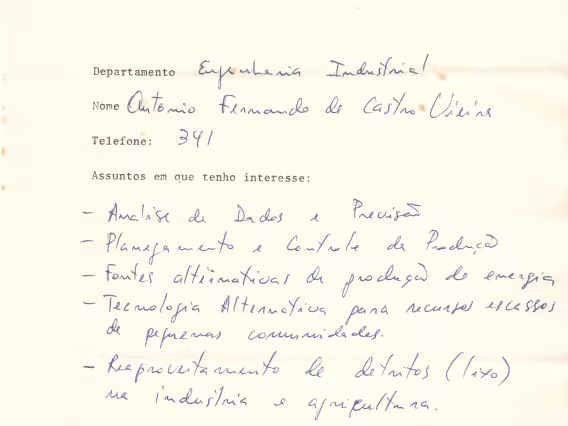 Departamento Engenharia Industrial
Nome Antonio Fernando de Castro Vieira
Telefone: 341
Assuntos em que tenho interesse:
- Analise de Dados e Previsão
- Planejamento e Controle da Produção
- Fontes alternativas de produção de energia
- Tecnologia Alternativa para recursos escassos
de pequenas comunidades.
- Reaproveitamento de detritos (lixo)
na industria e agricultura.